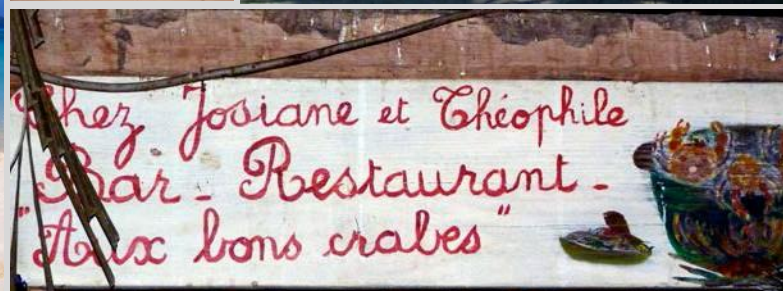 Chez Josiane et Théophile
Bar - Restaurant -
"Aux bons crabes"